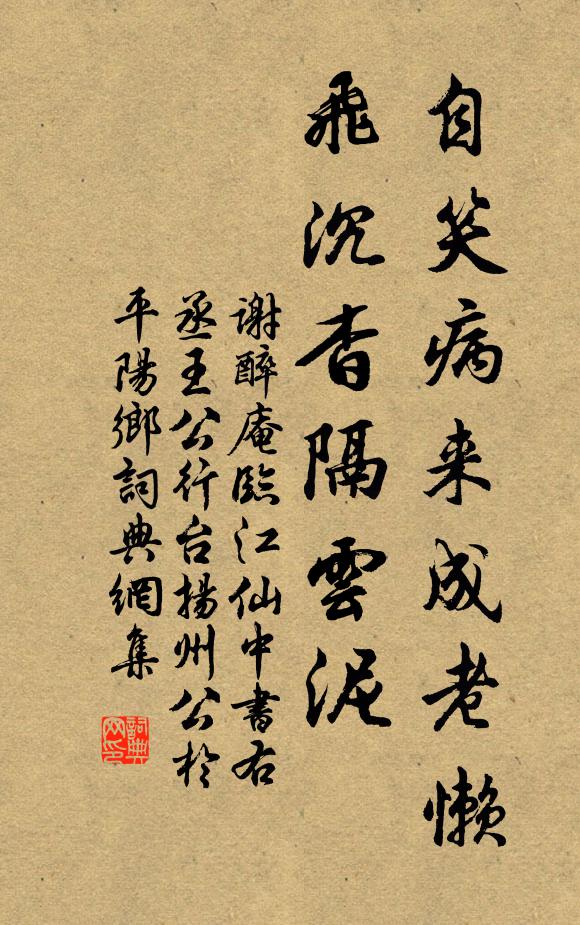 自笑病来成老懒
飛沉杳隔雲泥
謝醉庵臨江仙中書右
丞王公行台揚州公於
平陽鄉詞典網集
詞典网印